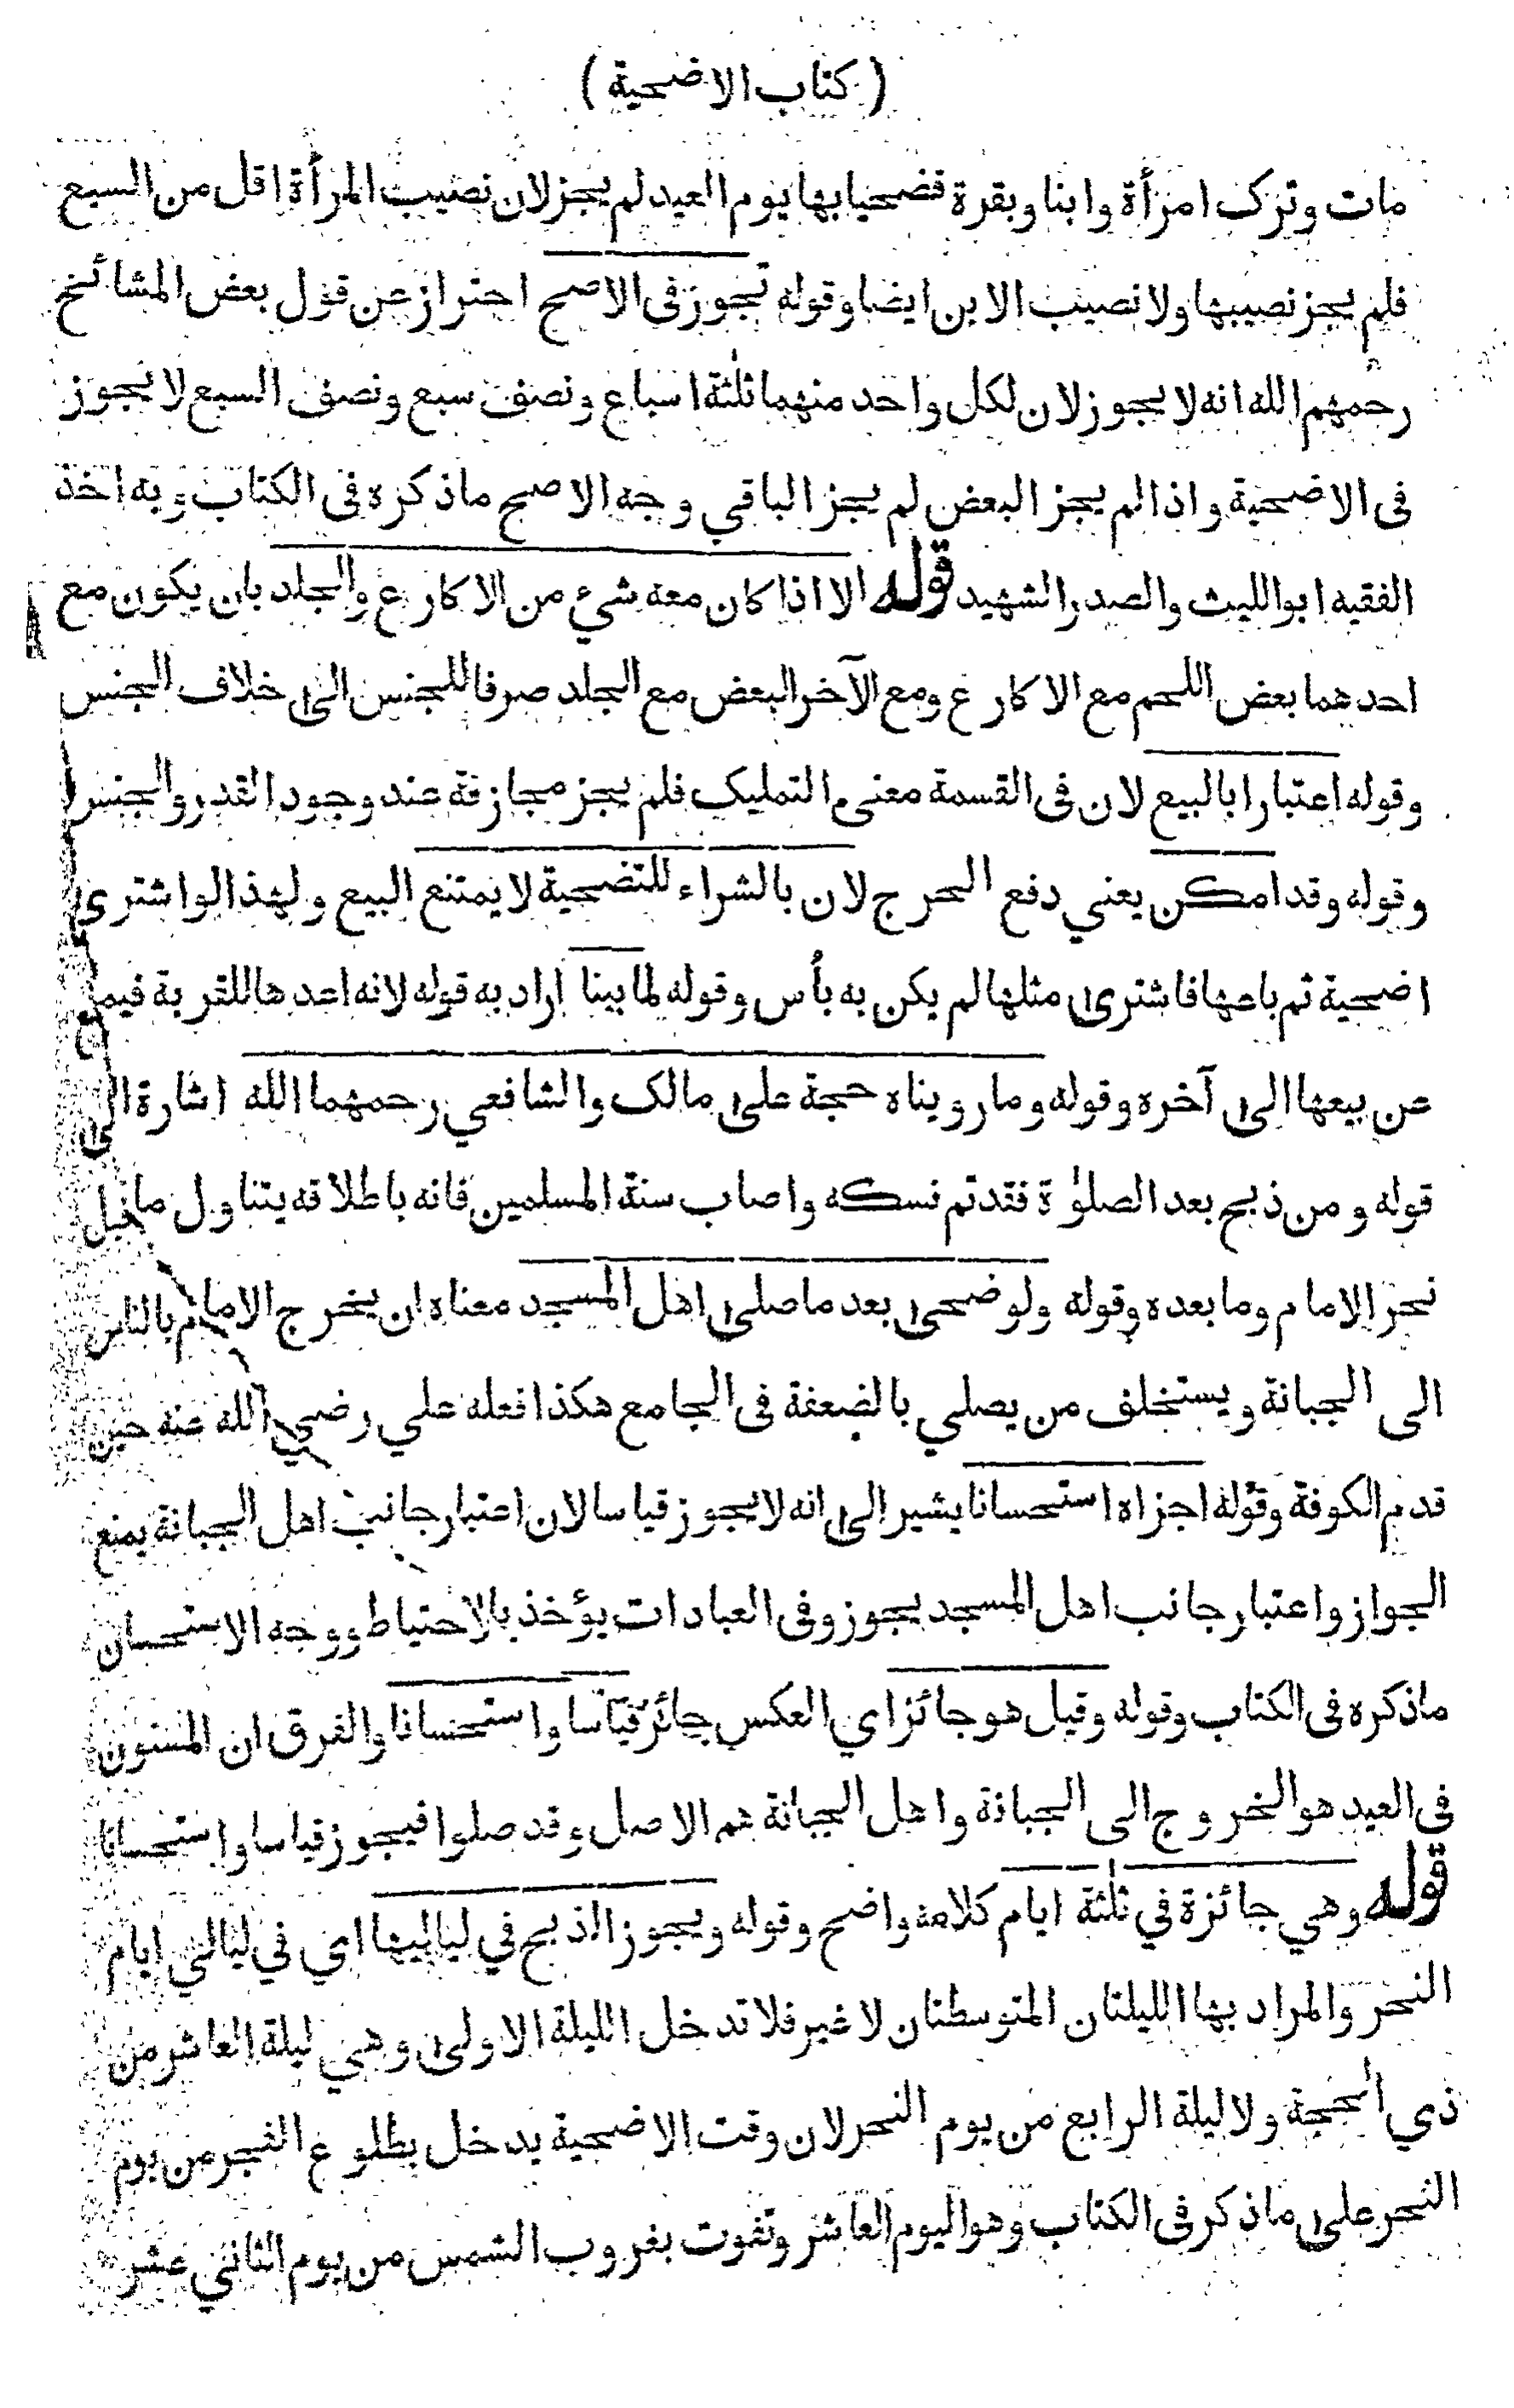 ( كتاب الاضحية )
مات وترك امرأة وابنا وبقرة فضحيا بها يوم العيد لم يجز لان نصيب المرأة اقل من السبع
فلم يجز نصيبها ولا نصيب الابن ايضا وقوله تجوز فى الاصح احتراز عن قول بعض المشائخ
رحمهم الله انه لا يجوز لان لكل واحد منهما ثلٰثة اسباع ونصف سبع ونصف السبع لا يجوز
فى الاضحية واذا لم يجز البعض لم يجز الباقي وجه الاصح ما ذكره فى الكتاب وبه اخذ
الفقيه ابو الليث والصدر الشهيد قوله الا اذا كان معه شيء من الاكارع والجلد بان يكون مع
احدهما بعض اللحم مع الاكارع ومع الآخر البعض مع الجلد صرفا للجنس الىٰ خلاف الجنس
وقوله اعتبارا بالبيع لان فى القسمة معنى التمليك فلم يجز مجازفة عند وجود القدر والجنس
وقوله وقد امكن يعني دفع الحرج لان بالشراء للتضحية لا يمتنع البيع ولهذا لو اشترىٰ
اضحية ثم باعها فاشترىٰ مثلها لم يكن به بأس وقوله لما بينا اراد به قوله لانه اعدها للقربة فيمنع
عن بيعها الىٰ آخره وقوله وما رويناه حجة علىٰ مالك والشافعي رحمهما الله اشارة الىٰ
قوله و من ذبح بعد الصلوٰة فقد تم نسكه واصاب سنة المسلمين فانه باطلاقه يتناول ما قبل
نحر الامام وما بعده وقوله ولو ضحىٰ بعد ما صلىٰ اهل المسجد معناه ان يخرج الامام بالناس
الى الجبانة ويستخلف من يصلي بالضعفة فى الجامع هكذا فعله علي رضي الله عنه حين
قدم الكوفة وقوله اجزاه استحسانا يشير الىٰ انه لا يجوز قياسا لان اعتبار جانب اهل الجبانة يمنع
الجواز واعتبار جانب اهل المسجد يجوز وفى العبادات يؤخذ بالاحتياط ووجه الاستحسان
ما ذكره فى الكتاب وقوله وقيل هو جائز اي العكس جائز قياسا واستحسانا والفرق ان المسنون
فى العيد هو الخروج الى الجبانة واهل الجبانة هم الاصل وقد صلوا فيجوز قياسا واستحسانا
قوله وهي جائزة في ثلٰثة ايام كلامه واضح وقوله ويجوز الذبح في لياليها اي في ليالي ايام
النحر والمراد بها الليلتان المتوسطتان لا غير فلا تدخل الليلة الاولىٰ وهي ليلة العاشر من
ذي الحجة ولا ليلة الرابع من يوم النحر لان وقت الاضحية يدخل بطلوع الفجر من يوم
النحر علىٰ ما ذكر فى الكتاب وهو اليوم العاشر وتفوت بغروب الشمس من يوم الثاني عشر